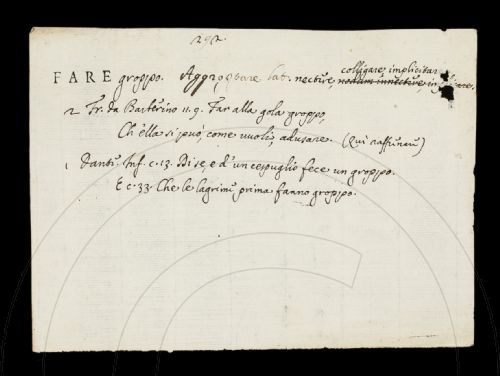 292.
colligare, implicitare
FARE groppo. Aggroppare lat. nectere, nodum innectere,
2 Fr. da Barberino 11. 9. Far alla gola groppo,
Ch'ella si può, come vuoli, adusare. (Qui
1 Dante. Inf. c. 13. Di se, e d'un cespuglio fece un groppo.
E c. 33. Che le lagrime prima fanno groppo.